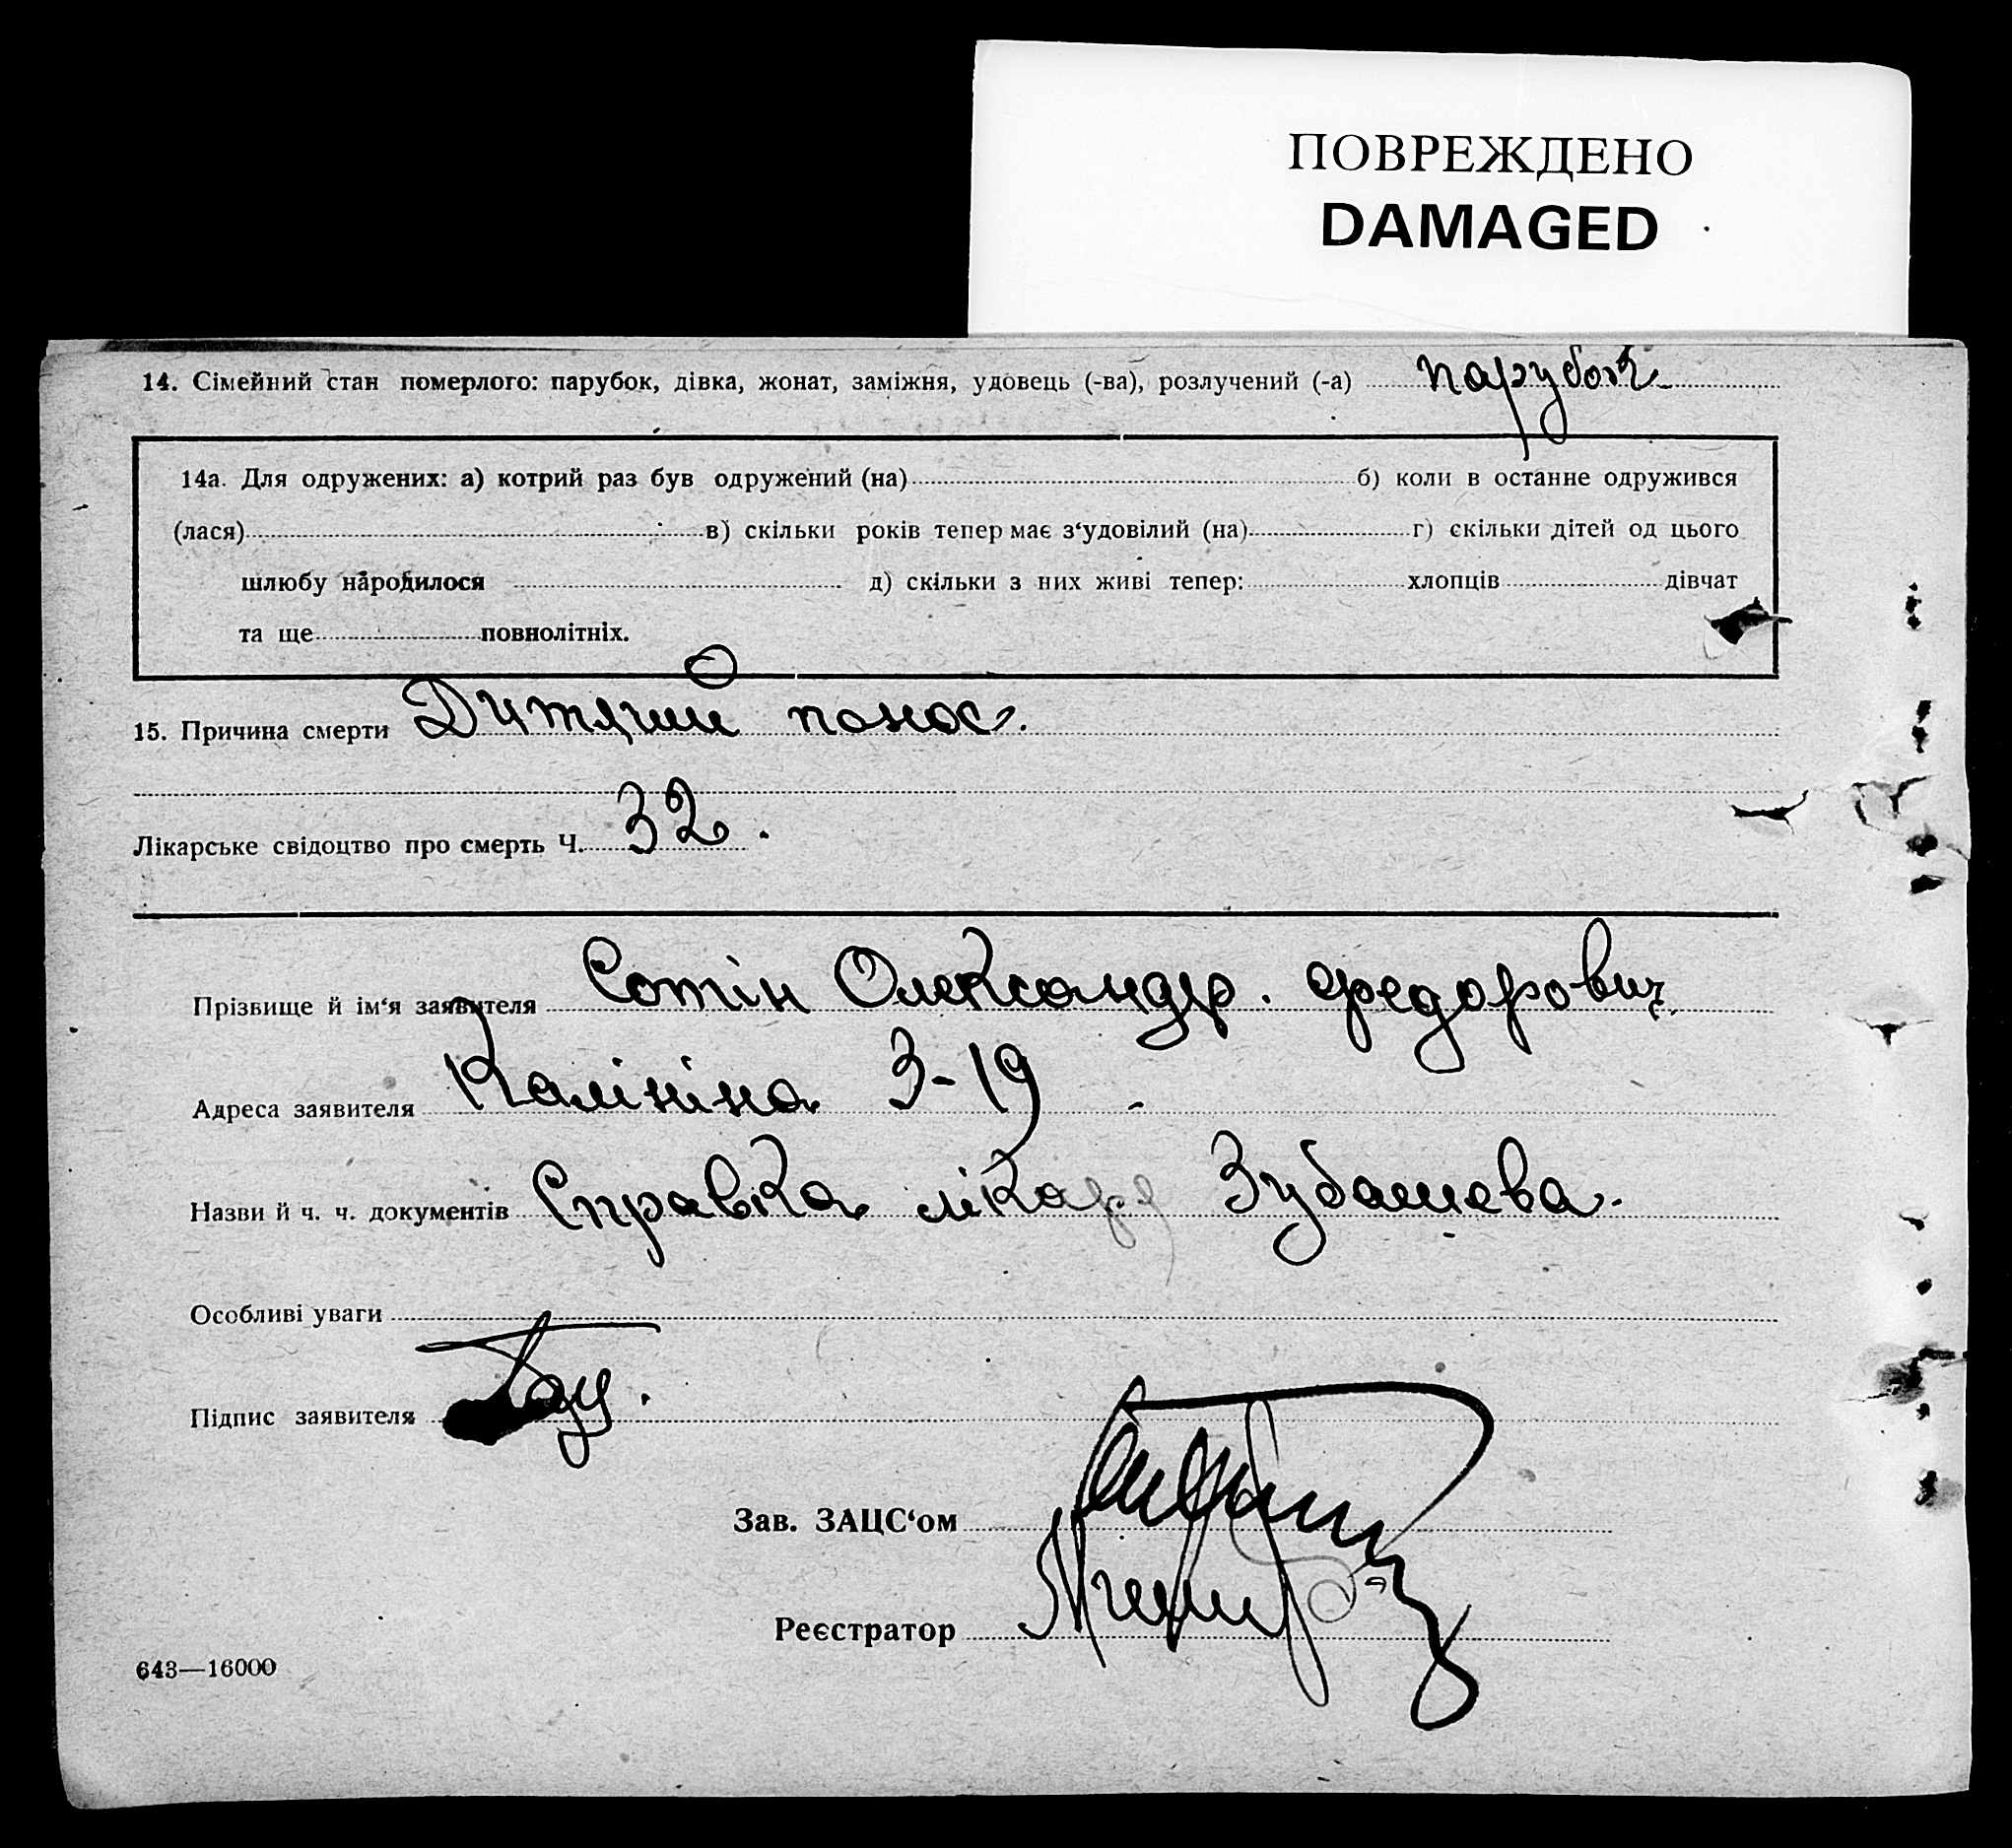 ПОВРЕЖДЕНО
DAMAGED
14. Сімейний стан померлого: парубок, дівка, жонат, заміжня, удовець (-ва), розлучений (-а) парубок
14а. Для одружених: а) котрий раз був одружений (на) б) коли в останнє одружився
(лася) в) скільки років тепер має з‘удовілий (на) г) скільки дітей од цього
шлюбу народилося д) скільки з них живі тепер: хлопців дівчат
та ще повнолітніх.
15. Причина смерти Дитячий понос.
Лікарське свідоцтво про смерть Ч. 32.
Прізвище й ім‘я заявителя Сотін Олександр. Федорович
Адреса заявителя Калініна 3-19
Назви й ч. ч. документів Справка лікаря Зубашева.
Особливі уваги
Підпис заявителя
Зав. ЗАЦС‘ом
Реєстратор
643—16000